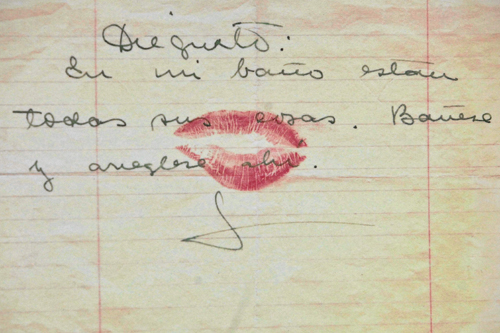 Dieguito:
En mi baño están
todas sus cosas. Bañese
y arreglese ahi.